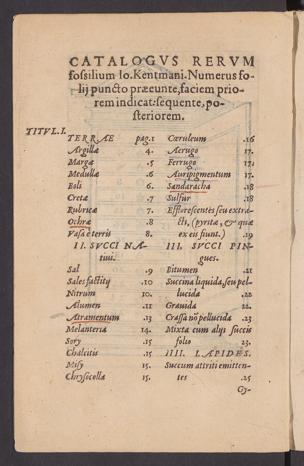 CATALOGVS RERVM
fossilium Io. Kentmani. Numerus fo-
lij puncto præeunte, faciem prio-
rem indicat: sequente, po-
steriorem.
TITVL. I.
TERRAE pag. 1
Argillæ 4.
Margæ 5.
Medullæ 6.
Boli 6.
Cretæ 7.
Rubricæ 7.
Ochræ .8
Vasa è terris 8.
II. SVCCI NA-
tiui.
Sal .9
Sales factitij .10
Nitrum 10.
Alumen .11
Atramentum .13
Melanteria 14.
Sory .15
Chalcitis .15
Misy 15.
Chrysocolla 15.
Cæruleum .16
Aerugo 17.
Ferrugo 17.
Auripigmentum 17.
Sandaracha .18
Sulfur .18
Efflorescentes seu extra-
cti, (pyritæ, & quæ
ex eis fiunt.) .19
III. SVCCI PIN-
gues.
Bitumen .21
Succina liquida, seu pel-
lucida .22
Grauida 22.
Crassa nõ pellucida .23
Mixta cum alijs succis
folio 23.
IIII. LAPIDES.
Succum attriti emitten-
tes .25
Gy-